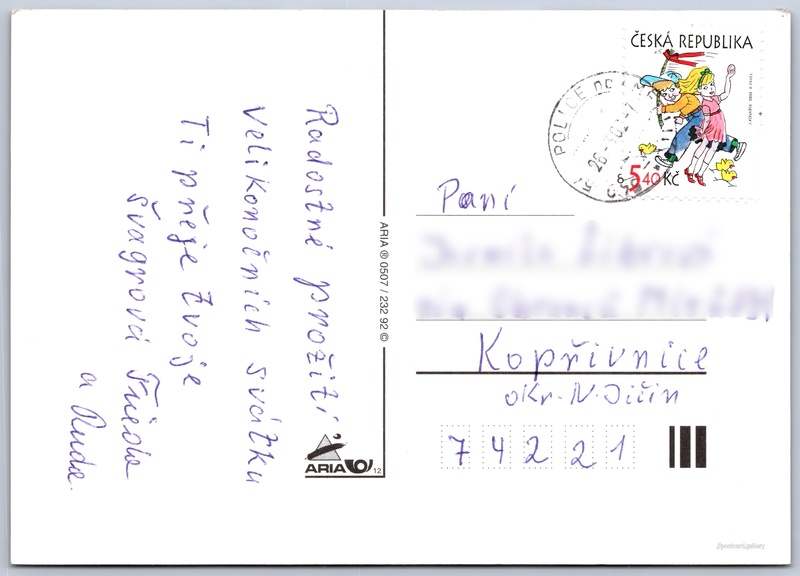 Radostné prožití
velikonočních svátku
Ti přeje tvoje
švagrová Frieda
a Ruda.
ARIA ® 0507 / 232 92 ©
ARIA 12
ČESKÁ REPUBLIKA
5,40 Kč
POLICE
Paní
Kopřivnice
okr. N. Jičín
74221